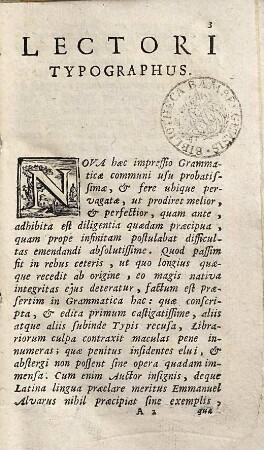 3
LECTORI
TYPOGRAPHUS.
BIBLIOTHECA
NOVA hæc impressio Gramma-
ticæ communi usu probatis-
simæ, & fere ubique per-
vagatæ, ut prodiret melior,
& perfectior, quam ante,
adhibita est diligentia quædam præcipua,
quam prope infinitam postulabat difficul-
tas emendandi absolutissime. Quod passim
fit in rebus ceteris, ut quo longius quæ-
que recedit ab origine, eo magis nativa
integritas ejus deteratur, factum est præ-
sertim in Grammatica hac: quæ conscri-
pta, & edita primum castigatissime, aliis
atque aliis subinde Typis recusa, Libra-
riorum culpa contraxit maculas pene in-
numeras: quæ penitus insidentes elui, &
abstergi non possent sine opera quadam im-
mensa. Cum enim Auctor insignis, deque
Latina lingua præclare meritus Emmanuel
Alvarus nihil præcipiat sine exemplis,
A 2 quæ